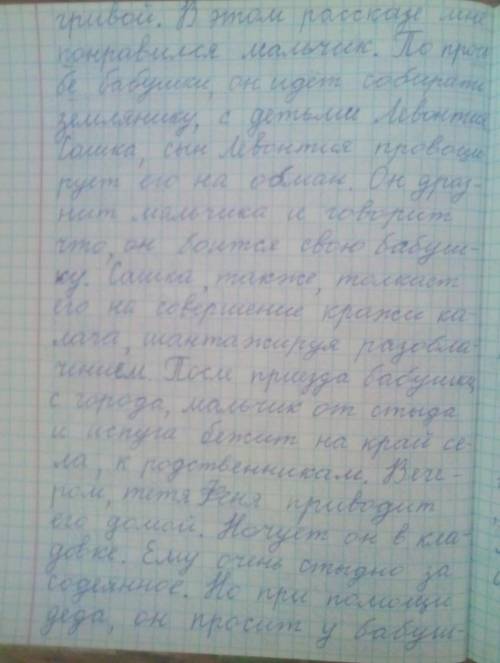 гривой. В этом рассказе мне
понравился мальчик. По прос
бе бабушки, он идёт собирать
землянику, с детьми Левонтия
Сашка, сын Левонтия провоци
рует его на обман. Он драз-
нит мальчика и говорит
что, он боится свою бабуш-
ку. Сашка, также, толкает
его на совершение кражи ка-
лача, шантажируя разобла-
чением. После приезда бабушки
с города, мальчик от стыда
и испуга бежит на край се-
ла, к родственникам. Вече-
ром, тётя Феня приводит
его домой. Ночует он в кла-
довке. Ему очень стыдно за
содеянное. Но при помощи
деда, он просит у бабуш-